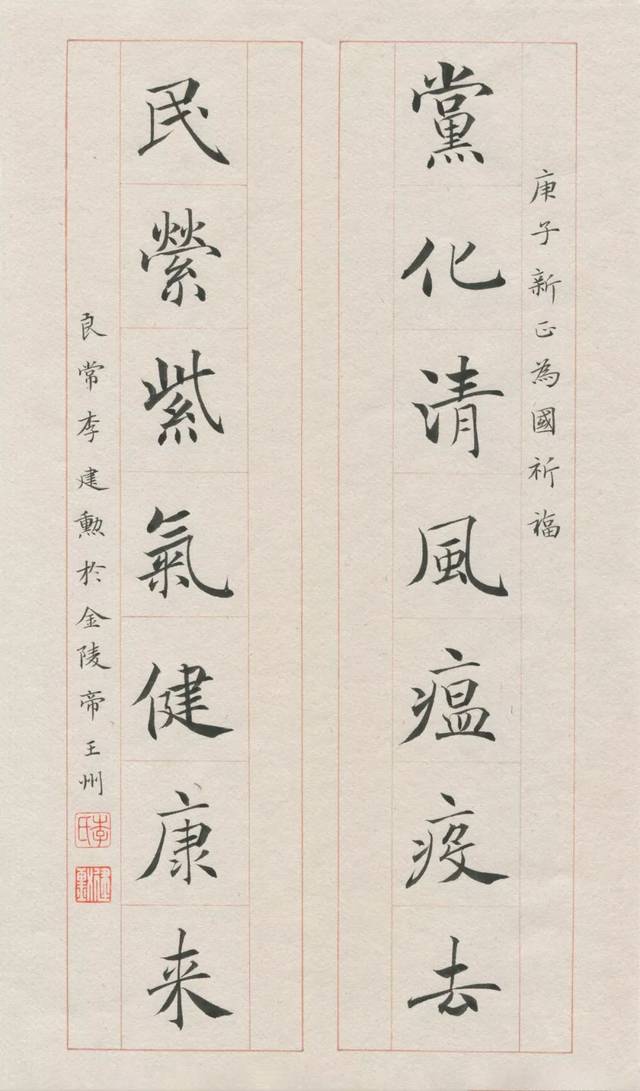 庚子新正為國祈福
黨化清風瘟疫去
民縈紫氣健康来
良常李建勲於金陵帝王州
李氏